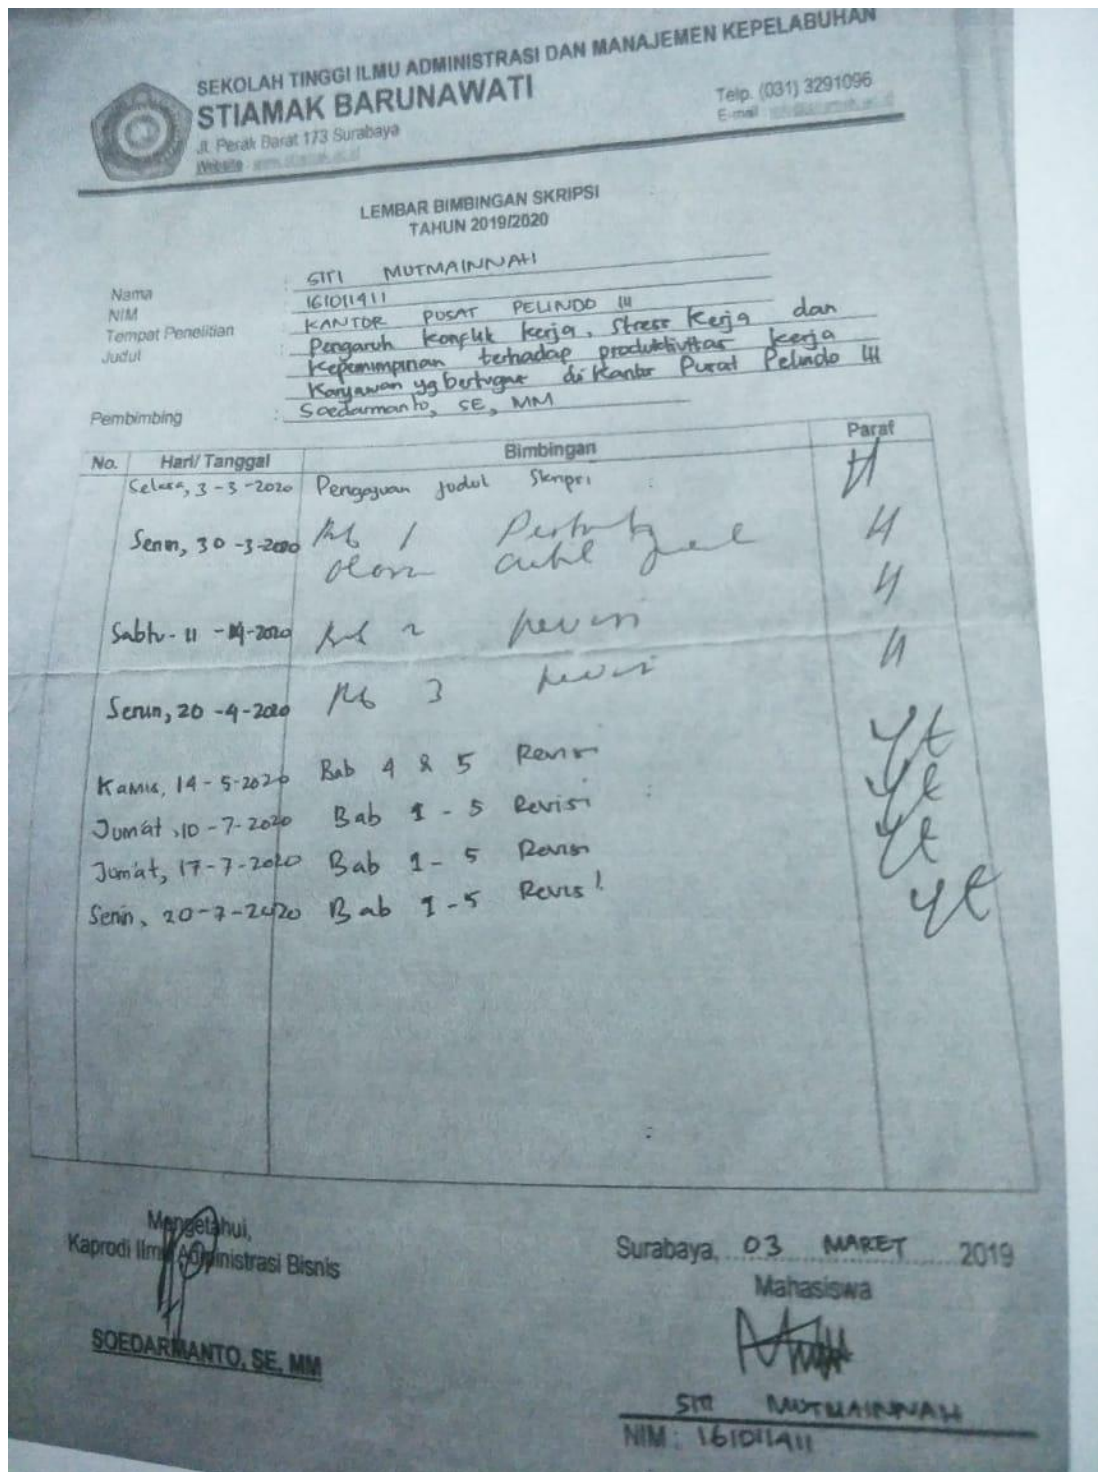 SEKOLAH TINGGI ILMU ADMINISTRASI DAN MANAJEMEN KEPELABUHAN
STIAMAK BARUNAWATI
Jl. Perak Barat 173 Surabaya
Telp. (031) 3291096
Website
E-mail
LEMBAR BIMBINGAN SKRIPSI
TAHUN 2019/2020
Nama : SITI MUTMAINNAH
NIM : 161011411
Tempat Penelitian : KANTOR PUSAT PELINDO III
Judul : Pengaruh Konflik kerja, Stress Kerja dan
Kepemimpinan terhadap produktivitas kerja
Karyawan yg bertugas di Kantor Pusat Pelindo III
Pembimbing : Soedarmanto, SE, MM
No. Hari/ Tanggal Bimbingan Paraf
Selasa, 3-3-2020 Pengajuan judul Skripsi
Senin, 30-3-2020 Bab 1
Sabtu- 11 -4-2020 Bab 2 revisi
Senin, 20-4-2020 Bab 3 revisi
Kamis, 14-5-2020 Bab 4 & 5 Revisi
Jum'at, 10-7-2020 Bab 1-5 Revisi
Jum'at, 17-7-2020 Bab 1-5 Revisi
Senin, 20-7-2020 Bab 1-5 Revisi
Mengetahui,
Kaprodi Ilmu Administrasi Bisnis
SOEDARMANTO, SE, MM
Surabaya, 03 MARET 2019
Mahasiswa
SITI MUTMAINNAH
NIM : 161011411